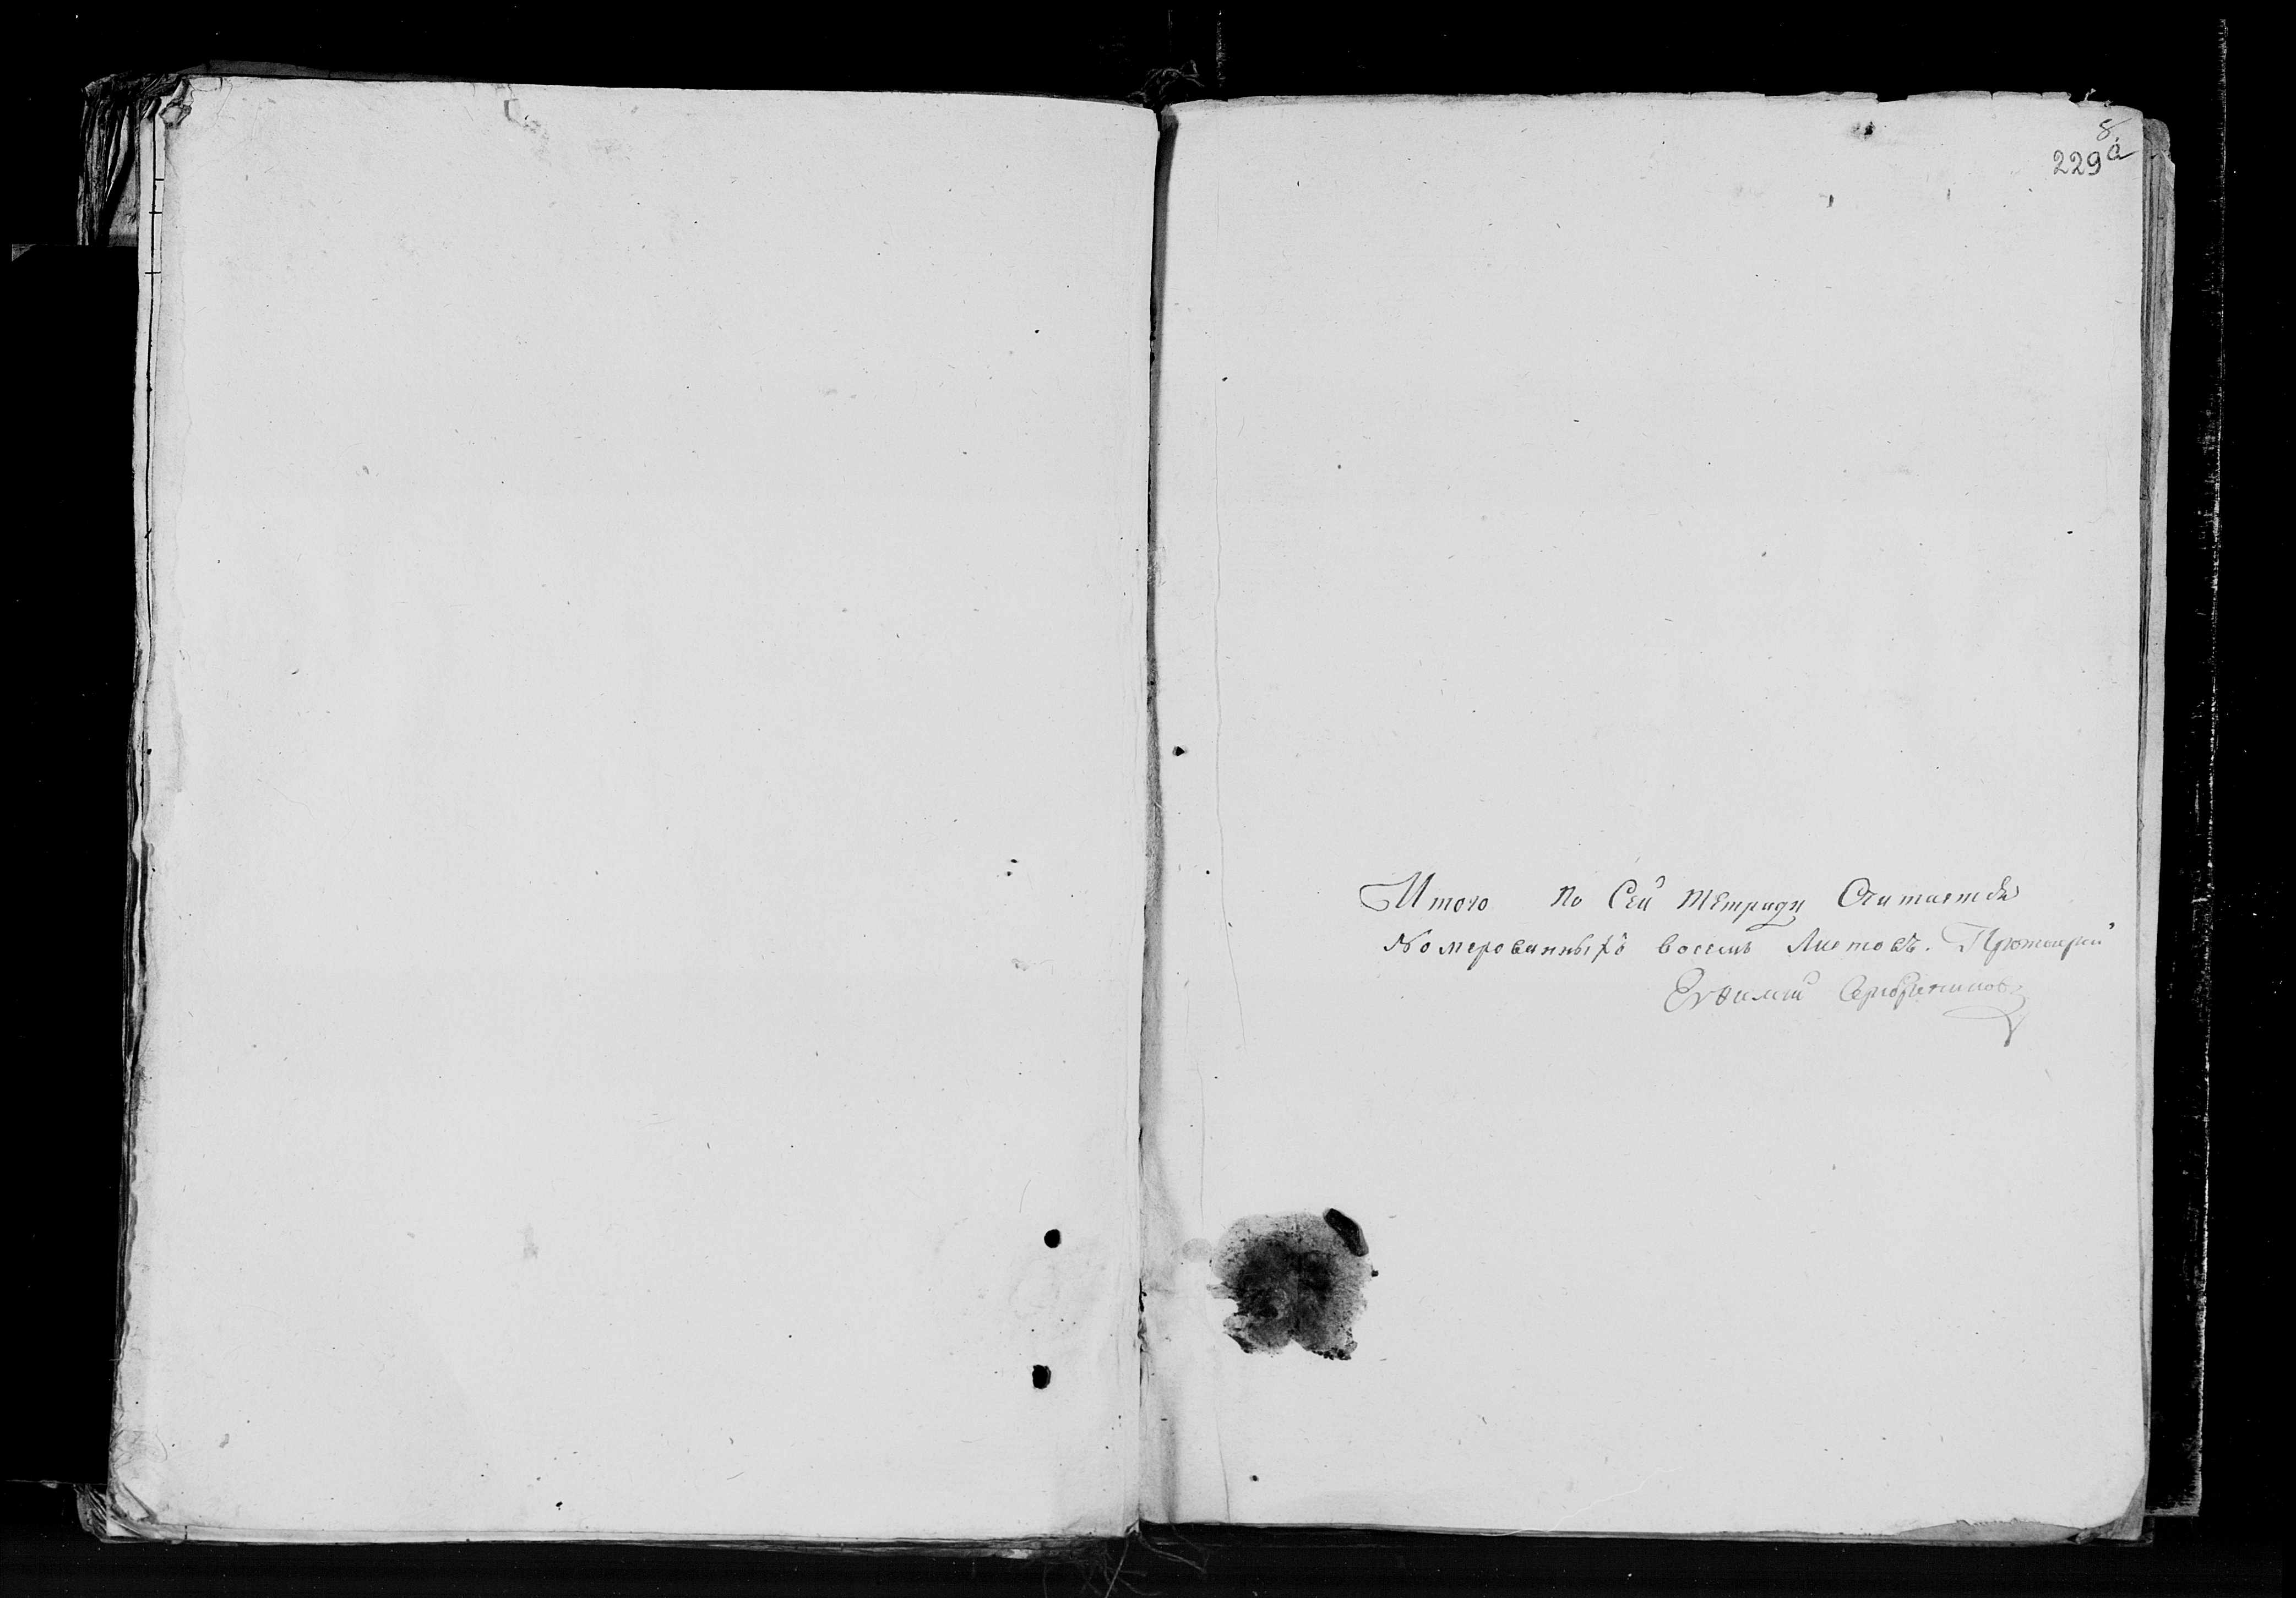 8
229а
Итого по Сей тетради Считается
Номерованныхъ восемь Листовъ. Протоиерей
Евѳимий Серебрениковъ